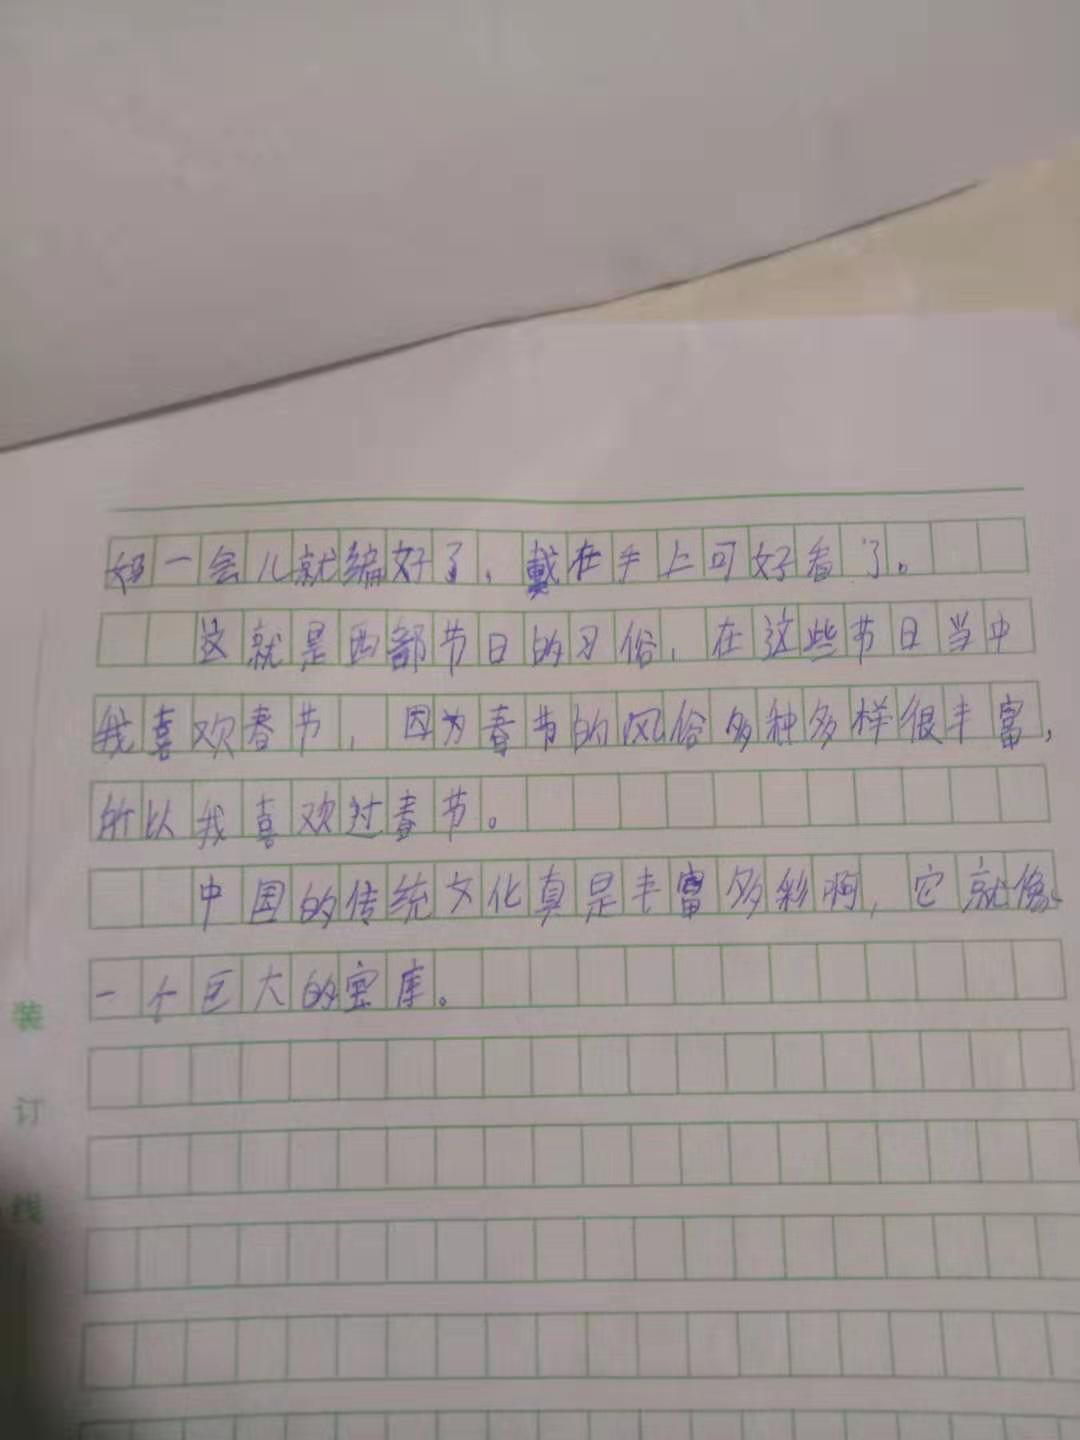 妈一会儿就编好了、戴在手上可好看了。
这就是西部节日的习俗、在这些节日当中
我喜欢春节，因为春节的风俗多种多样很丰富，
所以我喜欢过春节。
中国的传统文化真是丰富多彩啊，它就像
一个巨大的宝库。
装
订
线